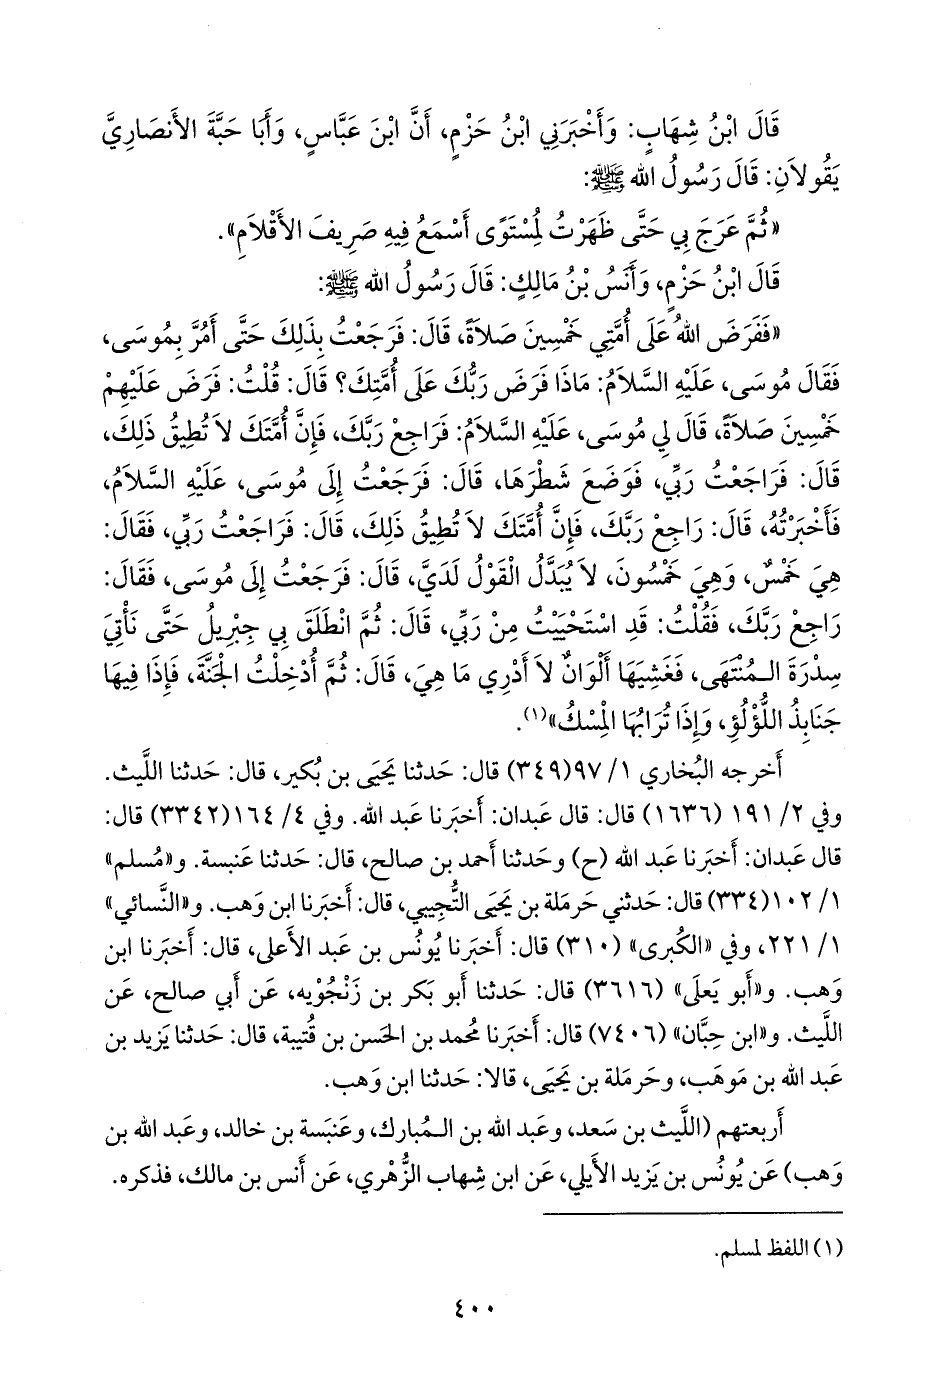 قَالَ ابْنُ شِهَابٍ: وَأَخْبَرَنِي ابْنُ حَزْمٍ، أَنَّ ابْنَ عَبَّاسٍ، وَأَبَا حَبَّةَ الأَنصَارِيَّ
يَقُولاَنِ: قَالَ رَسُولُ الله ﷺ:
«ثُمَّ عَرَجَ بِي حَتَّى ظَهَرْتُ لِمُسْتَوًى أَسْمَعُ فِيهِ صَرِيفَ الأَقْلاَمِ».
قَالَ ابْنُ حَزْمٍ، وَأَنَسُ بْنُ مَالِكٍ: قَالَ رَسُولُ الله ﷺ:
«فَفَرَضَ اللهُ عَلَى أُمَّتِي خَمْسِينَ صَلاَةً، قَالَ: فَرَجَعْتُ بِذَلِكَ حَتَّى أَمُرَّ بِمُوسَى،
فَقَالَ مُوسَى، عَلَيْهِ السَّلاَمُ: مَاذَا فَرَضَ رَبُّكَ عَلَى أُمَّتِكَ؟ قَالَ: قُلْتُ: فَرَضَ عَلَيْهِمْ
خَمْسِينَ صَلاَةً، قَالَ لِي مُوسَى، عَلَيْهِ السَّلاَمُ: فَرَاجِعْ رَبَّكَ، فَإِنَّ أُمَّتَكَ لاَ تُطِيقُ ذَلِكَ،
قَالَ: فَرَاجَعْتُ رَبِّي، فَوَضَعَ شَطْرَهَا، قَالَ: فَرَجَعْتُ إِلَى مُوسَى، عَلَيْهِ السَّلاَمُ،
فَأَخْبَرْتُهُ، قَالَ: رَاجِعْ رَبَّكَ، فَإِنَّ أُمَّتَكَ لاَ تُطِيقُ ذَلِكَ، قَالَ: فَرَاجَعْتُ رَبِّي، فَقَالَ:
هِيَ خَمْسٌ، وَهِيَ خَمْسُونَ، لاَ يُبَدَّلُ الْقَوْلُ لَدَيَّ، قَالَ: فَرَجَعْتُ إِلَى مُوسَى، فَقَالَ:
رَاجِعْ رَبَّكَ، فَقُلْتُ: قَدِ اسْتَحْيَيْتُ مِنْ رَبِّي، قَالَ: ثُمَّ انْطَلَقَ بِي جِبْرِيلُ حَتَّى نَأْتِيَ
سِدْرَةَ الـمُنْتَهَى، فَغَشِيَهَا أَلْوَانٌ لاَ أَدْرِي مَا هِيَ، قَالَ: ثُمَّ أُدْخِلْتُ الجَنَّةَ، فَإِذَا فِيهَا
جَنَابِذُ اللُّؤْلُؤِ، وَإِذَا تُرَابُهَا الْمِسْكُ»(١).
أخرجه البُخاري ١/ ٩٧(٣٤٩) قال: حَدثنا يَحيَى بن بُكير، قال: حَدثنا اللَّيث.
وفي ٢/ ١٩١ (١٦٣٦) قال: قال عَبدان: أَخبَرنا عَبد الله. وفي ٤/ ١٦٤(٣٣٤٢) قال:
قال عَبدان: أَخبَرنا عَبد الله (ح) وحَدثنا أَحمد بن صالح، قال: حَدثنا عَنبسة. و«مُسلم»
١/ ١٠٢(٣٣٤) قال: حَدثني حَرمَلة بن يَحيَى التُّجِيبي، قال: أَخبَرنا ابن وَهب. و«النَّسائي»
١/ ٢٢١، وفي «الكُبرى» (٣١٠) قال: أَخبَرنا يُونُس بن عَبد الأَعلى، قال: أَخبَرنا ابن
وَهب. و«أَبو يَعلَى» (٣٦١٦) قال: حَدثنا أَبو بَكر بن زَنْجُويه، عَن أَبي صالح، عَن
اللَّيث. و«ابن حِبَّان» (٧٤٠٦) قال: أَخبَرنا مُحمد بن الحَسن بن قُتيبة، قال: حَدثنا يَزيد بن
عَبد الله بن مَوهَب، وحَرمَلة بن يَحيَى، قالا: حَدثنا ابن وَهب.
أَربعتهم (اللَّيث بن سَعد، وعَبد الله بن الـمُبارك، وعَنبَسة بن خالد، وعَبد الله بن
وَهب) عَن يُونُس بن يَزيد الأَيلي، عَن ابن شِهاب الزُّهْري، عَن أَنس بن مالك، فذكره.
(١) اللفظ لمسلم.
٤٠٠